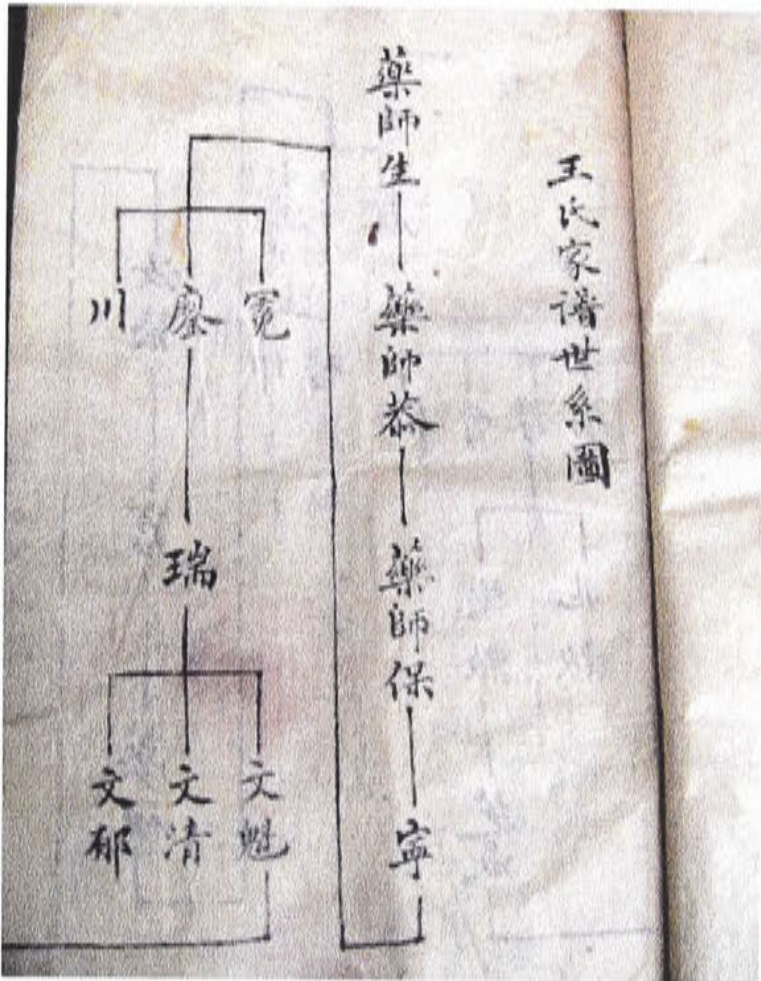 王氏家谱世系圖
藥師生
藥師恭
藥師保
寧
寛
廖
川
瑞
文魁
文清
文郁